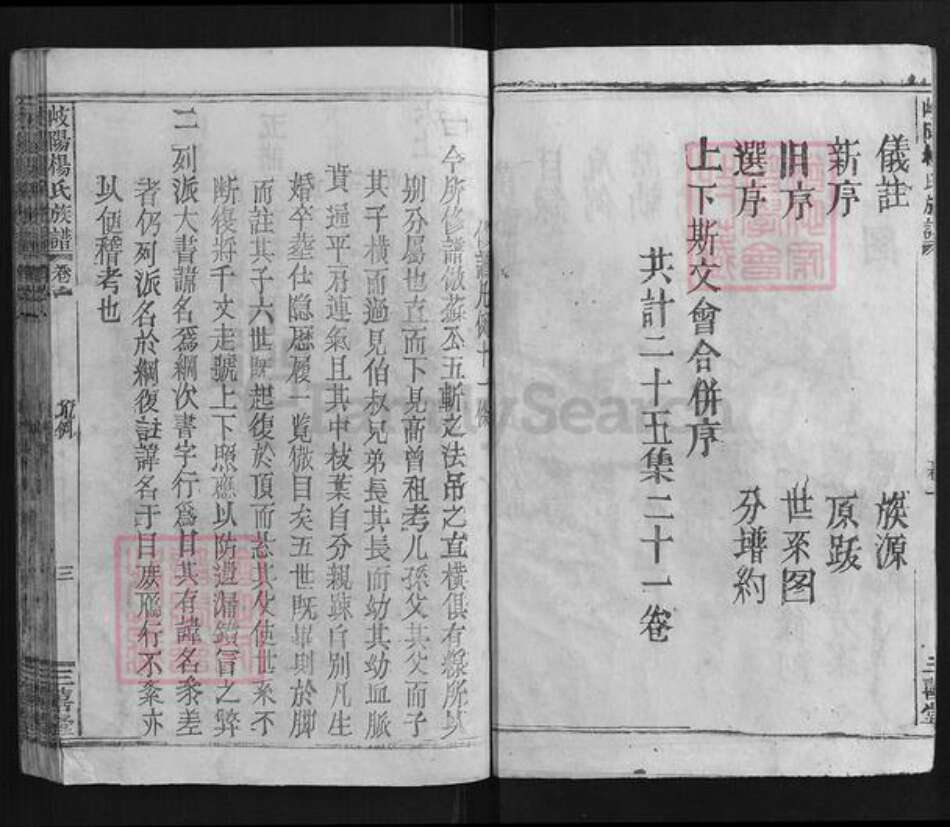 儀註 族源
新序 原跋
旧序 世系图
選序 分增約
上下斯文會合併序
共計二十五集二十一卷
三喜堂
修譜凡例十一條
一 今所修譜倣蘇公五斬之法吊之直橫俱有線所以
別分屬也直而下見高曾祖考儿孫父其父而子
其子橫而過見伯叔兄弟長其長而幼其幼血脈
貫通平府連氣且其中枝葉自分親疎自別凡生
婚卒塟仕隐歷履一覧微目矣五世既畢則於脚
而註其子六世既起復於頂而恭其父使世系不
断復將千文走號上下照應以防遗漏錯冒之弊
二 列派大書諱名爲綱次書字行爲目其有諱名紊差
者仍列派名於綱復註諱名于目庶鴈行不紊亦
以便稽考也
岐陽楊氏族譜 卷一 凡例 三 三喜堂
FamilySearch